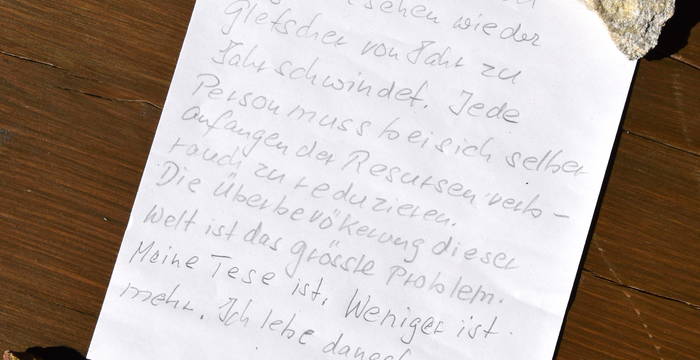 sehen wieder
Gletscher von Jahr zu
Jahr schwindet. Jede
Person muss bei sich selber
anfangen der Resursen verb-
rauch zu reduzieren.
Die Überbevökerung dieser
Welt ist das grösste Problem.
Meine Tese ist. Weniger ist
mehr. Ich lebe